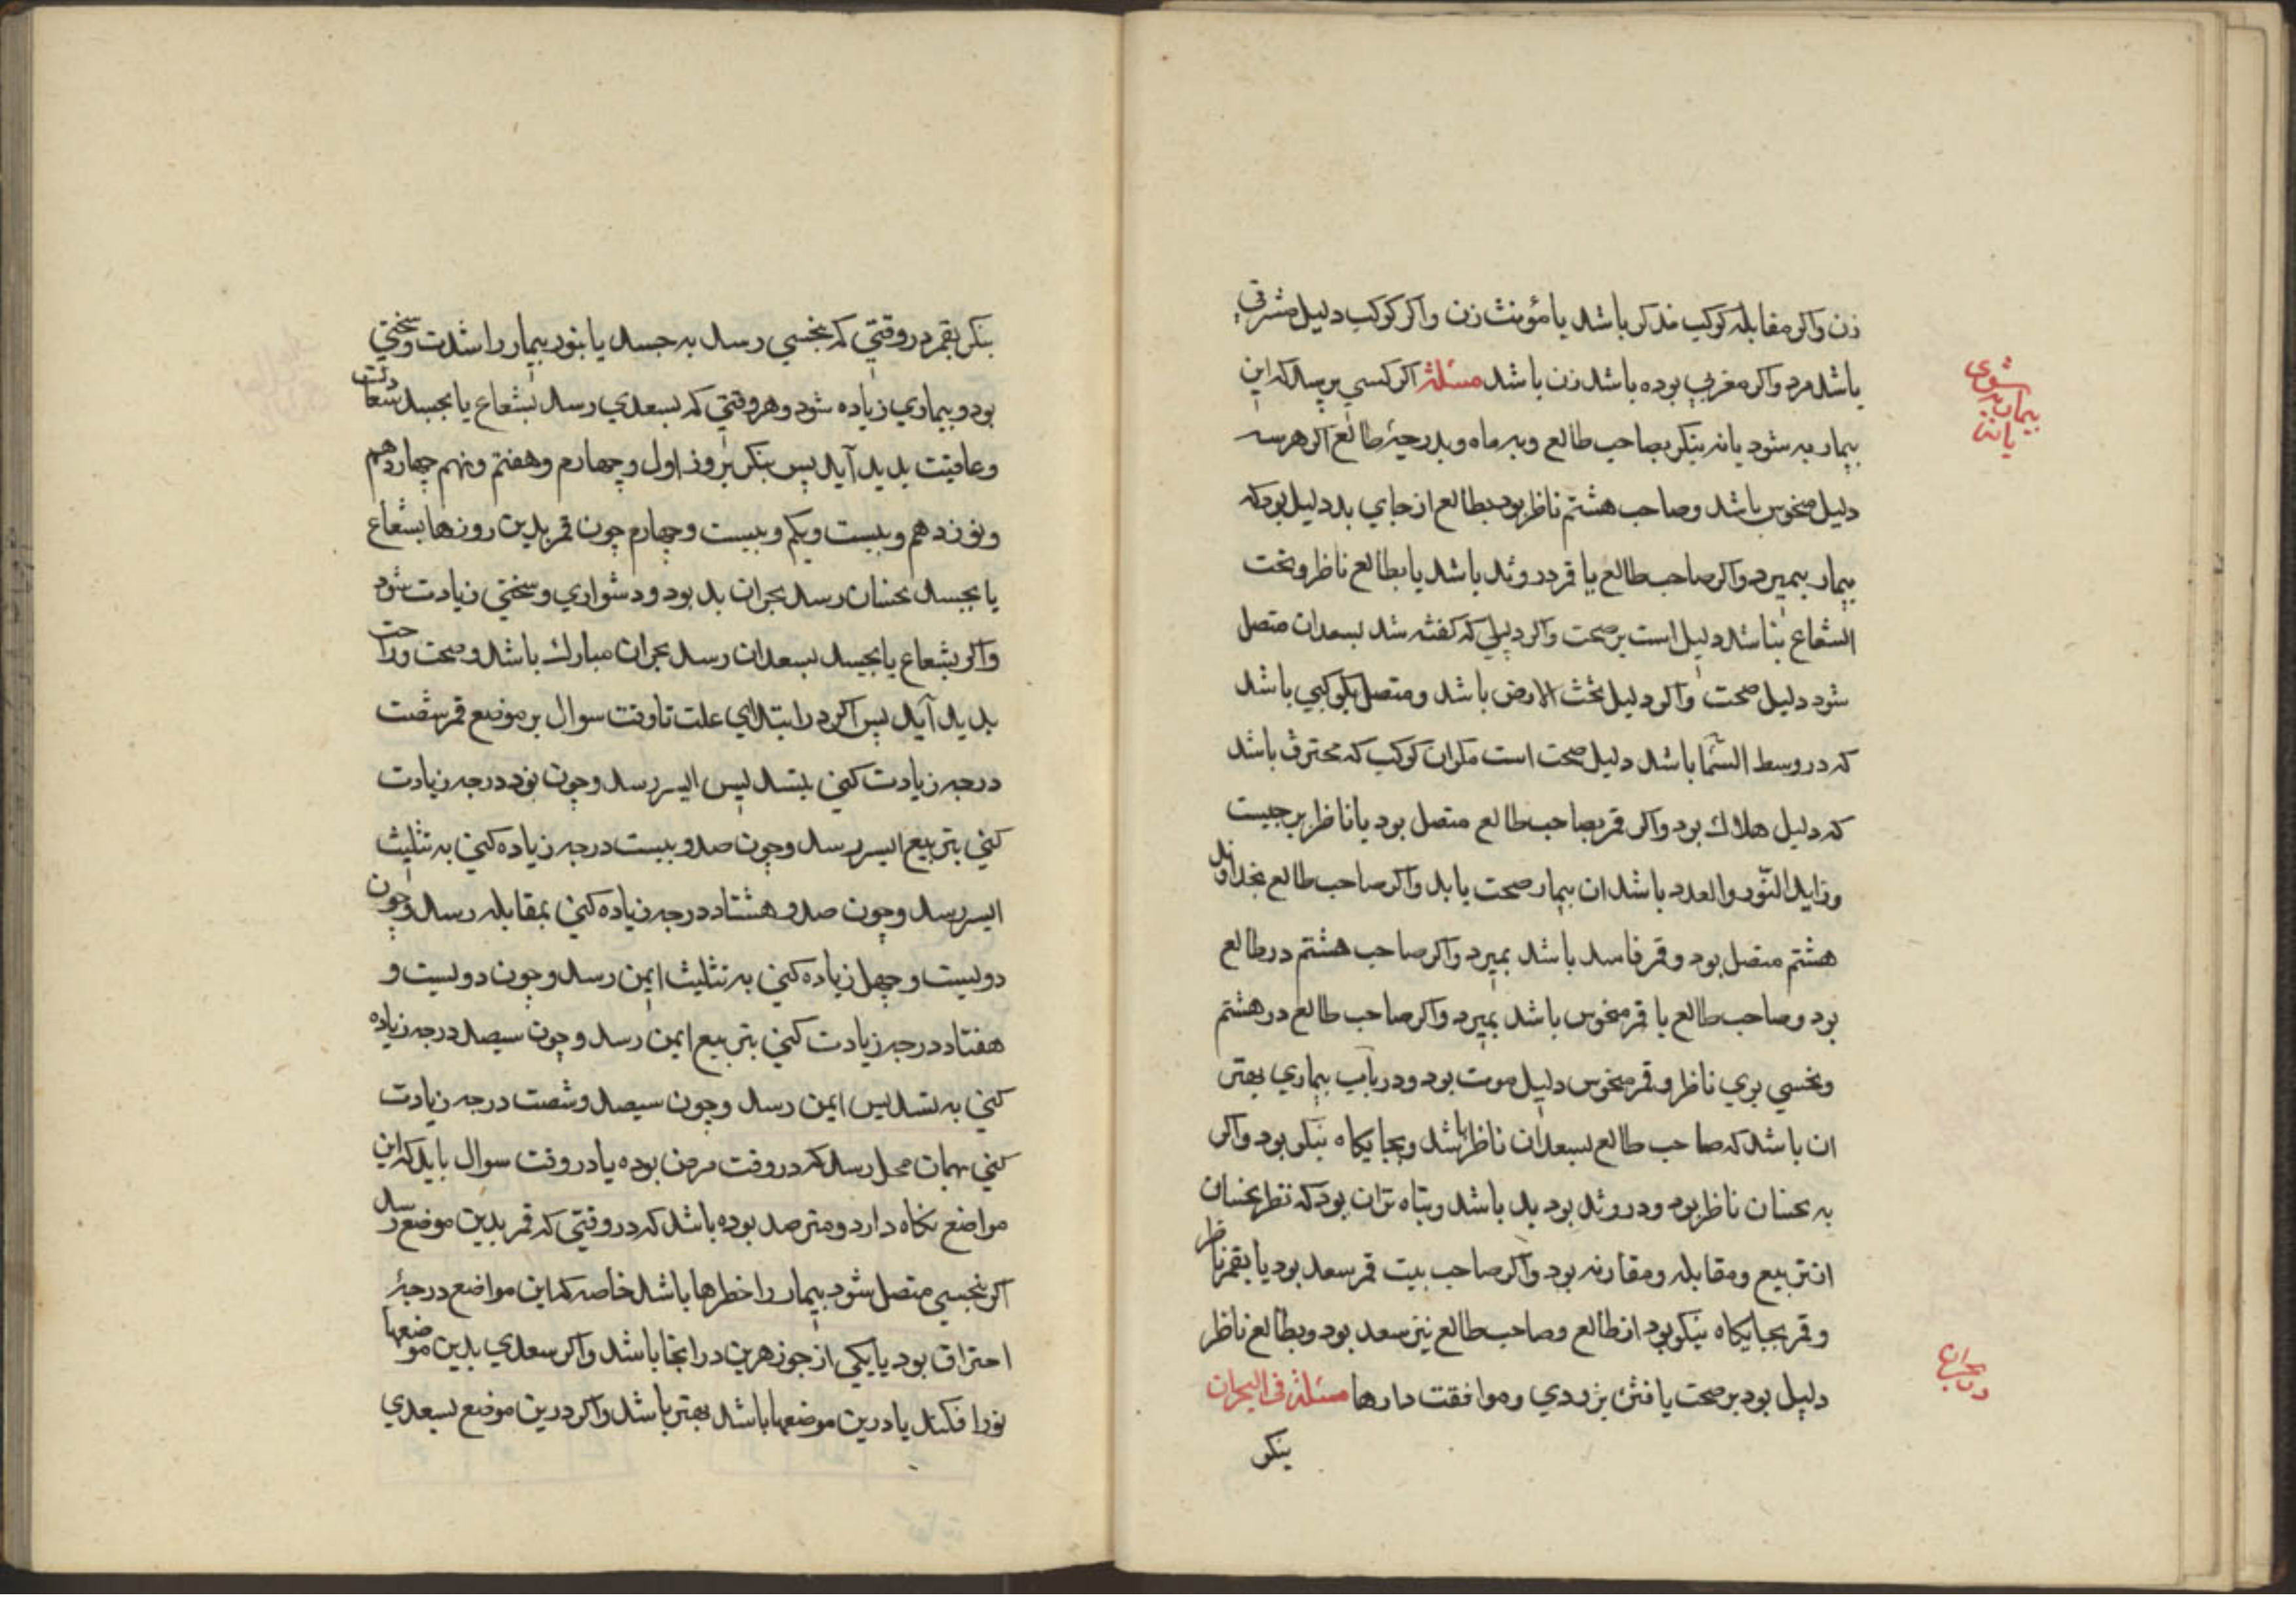 زن واکر مقابله کوکب مذکر باشد یا مؤنث زن واکر کوکب دلیل مشرقي
باشد مرد واکر مغربي بوده باشد زن باشد مسئلة اکر کسي پرسد که این
بیمار به شود یا نه بنکر بصاحب طالع وبه ماه وبدرجۀ طالع اکر هر سه
دلیل منحوس باشد وصاحب هشتم ناظر بود بطالع از جاي بد دلیل بود که
بیمار بمیرد واکر صاحب طالع یا قمر در وتد باشد یا بطالع ناظر وتحت
الشعاع نباشد دلیل است بر صحت واکر دلیلي که کفته شد بسعدان متصل
شود دلیل صحت واکر دلیل تحت الارض باشد ومتصل بکوکبي باشد
که در وسط السّما باشد دلیل صحت است مکر ان کوکب که محترق باشد
که دلیل هلاك بود واکر قمر بصاحب طالع متصل بود یا ناظر برجیست
وزاید النّور والعدد باشد ان بیمار صحت یابد واکر صاحب طالع بخداوند
هشتم متصل بود وقمر فاسد باشد بمیرد واکر صاحب هشتم در طالع
بود وصاحب طالع یا قمر منحوس باشد بمیرد واکر صاحب طالع در هشتم
ونحسي بوي ناظر وقمر منحوس دلیل موت بود ودر باب بیماري بهتر
ان باشد که صاحب طالع بسعدان ناظر باشد وبجایکاه نیکو بود واکر
به نحسان ناظر بود ودر وتد بود بد باشد وتباه تر ان بود که نظر نحسان
از تربیع ومقابله ومقارنه بود واکر صاحب بیت قمر سعد بود یا بقمر ناظر
وقمر بجایکاه نیکو بود از طالع وصاحب طالع نیز سعد بود وبطالع ناظر
دلیل بود بر صحت یافتن بزودي وموافقت دارها مسئلة في البحران
بنکر
شوی
بیمار به
یا نه
در بحران
بنکر بقمر در وقتي که بنحسي رسد به جسد یا بنور بیمار را شدت وسختي
بود وبیماري زیاده شود وهر وقتي که بسعدي رسد بشعاع یا بجسد سعادت
وعافیت پدید آید پس بنکر بروز اول وچهارم وهفتم ونهم چهاردهم
ونوزدهم وبیست ویکم وبیست وچهارم چون قمر بدین روزها بشعاع
یا بجسد نحسان رسد بحران بد بود ودشواري وسختي زیادت شود
واکر بشعاع یا بجسد بسعدان رسد بحران مبارك باشد وصحت وراحت
پدید آید پس اکر در ابتداي علت تا وقت سوال بر موضع قمر شصت
درجه زیادت کني بتسدیس ایسر رسد وچون نود درجه زیادت
کني بتربیع ایسر رسد وچون صد وبیست درجه زیاده کني به تثلیث
ایسر رسد وچون صد وهشتاد درجه زیاده کني بمقابله رسد وچون
دویست وچهل زیاده کني به تثلیث ایمن رسد وچون دویست و
هفتاد درجه زیادت کني بتربیع ایمن رسد وچون سیصد درجه زیاده
کني به تسدیس ایمن رسد وچون سیصد وشصت درجه زیادت
کني بهمان محل رسد که در وقت مرض بوده یا در وقت سوال باید که این
مواضع نکاه دارد ومترصد بوده باشد که در وقتي که قمر بدین موضع رسد
اکر بنحسي متصل شود بیمار را خطرها باشد خاصه که این مواضع درجۀ
احتراق بود یا یکي از جوزهرین در انجا باشد واکر سعدي بدین موضعها
نور افکند یا درین موضعها باشد بهتر باشد واکر درین موضع بسعدي